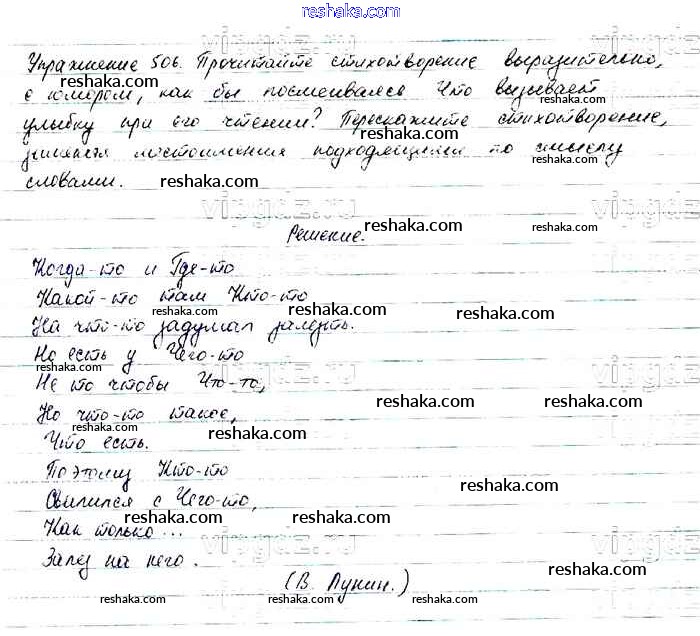 reshaka.com
Упражнение 506. Прочитайте стихотворение выразительно,
reshaka.com
с юмором, как бы посмеиваясь. Что вызывает
reshaka.com
reshaka.com
улыбку при его чтении? Перескажите стихотворение,
reshaka.com
местоимения подходящими по смыслу
словами.
reshaka.com
reshaka.com
reshaka.com
reshaka.com
Решение.
Когда-то и Где-то
Какой-то там Кто-то
reshaka.com
reshaka.com
reshaka.com
На что-то задумал залезть.
Но есть у Чего-то
reshaka.com
reshaka.com
Не то чтобы Что-то,
reshaka.com
reshaka.com
Но что-то такое,
reshaka.com
reshaka.com
Что есть.
Поэтому Кто-то
reshaka.com
Свалился с Чего-то,
reshaka.com
reshaka.com
Как только...
Залез на него.
reshaka.com
(В. Лунин.)
reshaka.com
reshaka.com
reshaka.com